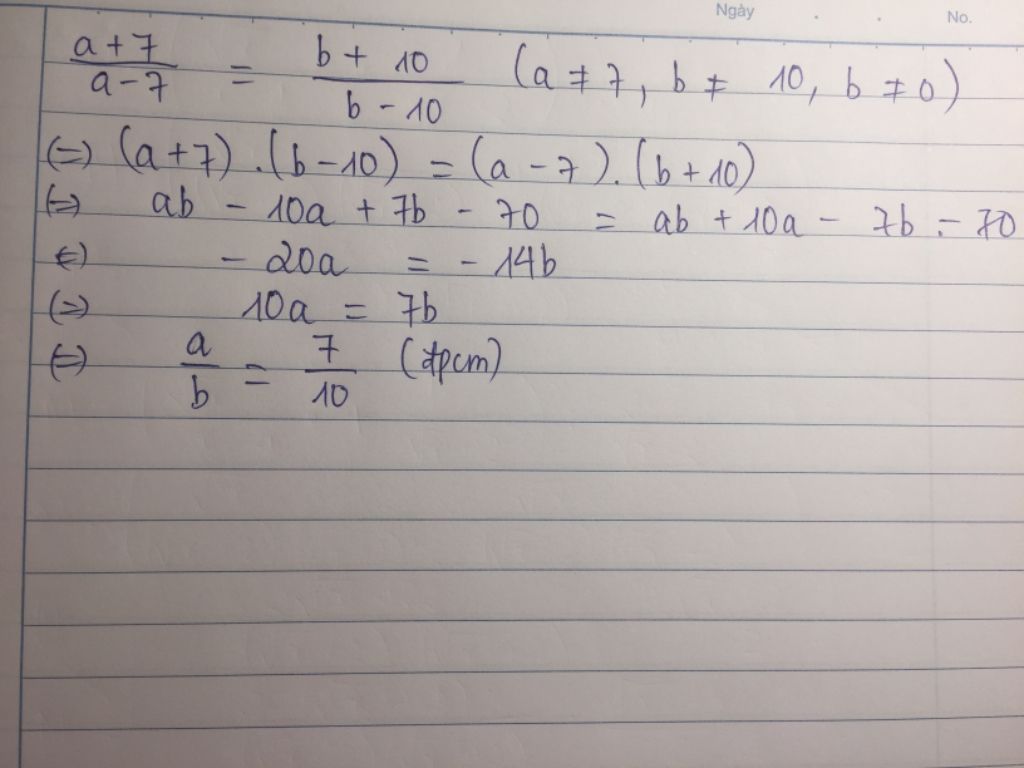 Ngày No.
a + 7 / a - 7 = b + 10 / b - 10 (a ≠ 7, b ≠ 10, b ≠ 0)
(=) (a + 7) . (b - 10) = (a - 7) . (b + 10)
(=) ab - 10a + 7b - 70 = ab + 10a - 7b - 70
(=) - 20a = - 14b
(=) 10a = 7b
(=) a / b = 7 / 10 (đpcm)